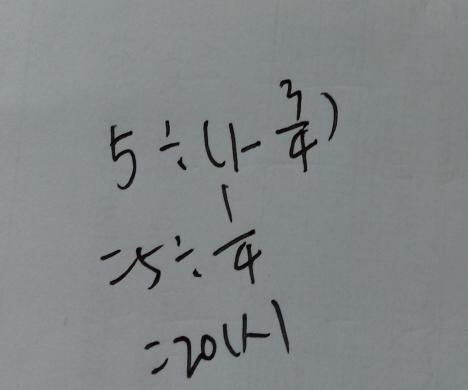 5÷(1-3/4)
=5÷1/4
=20(人)